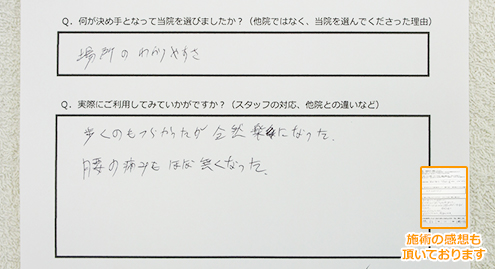 Q. 何が決め手となって当院を選びましたか？（他院ではなく、当院を選んでくださった理由）
場所のわかりやすさ
Q. 実際にご利用してみていかがですか？（スタッフの対応、他院との違いなど）
歩くのもつらかったが全然楽になった。
腰の痛みもほぼ無くなった。
施術の感想も
頂いております